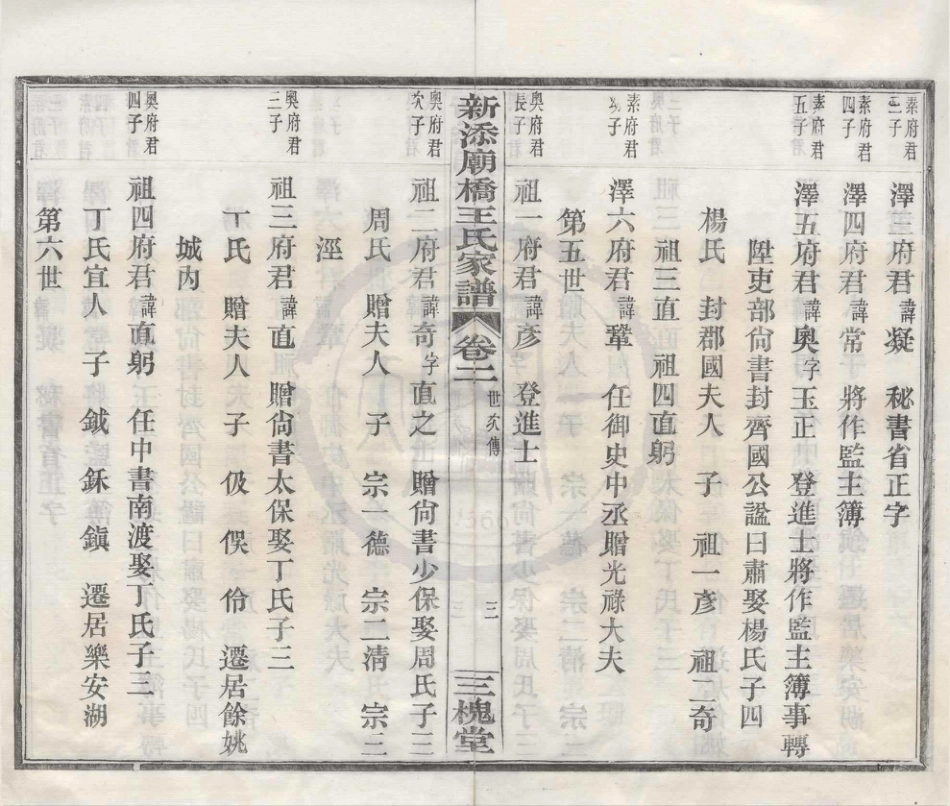 素府君三子
澤三府君諱凝 秘書省正字
素府君四子
澤四府君諱常 將作監主簿
素府君五子
澤五府君諱奧字玉正 登進士將作監主簿事轉
陞吏部尙書封齊國公諡曰肅娶楊氏子四
楊氏 封郡國夫人 子 祖一彥 祖二奇
祖三直 祖四直躬
素府君六子
澤六府君諱鞏 任御史中丞贈光祿大夫
第五世
奧府君長子
祖一府君諱彥 登進士
新添廟橋王氏家譜 卷二 世次傳 三 三槐堂
奧府君次子
祖二府君諱奇字直之 贈尙書少保娶周氏子三
周氏 贈夫人 子 宗一德 宗二清 宗三
涇
奧府君三子
祖三府君諱直 贈尙書太保娶丁氏子三
丁氏 贈夫人子 伋 俁 伶 遷居餘姚
城內
奧府君四子
祖四府君諱直躬 任中書南渡娶丁氏子三
丁氏宜人 子 鉞 鉌 鎭 遷居樂安湖
第六世